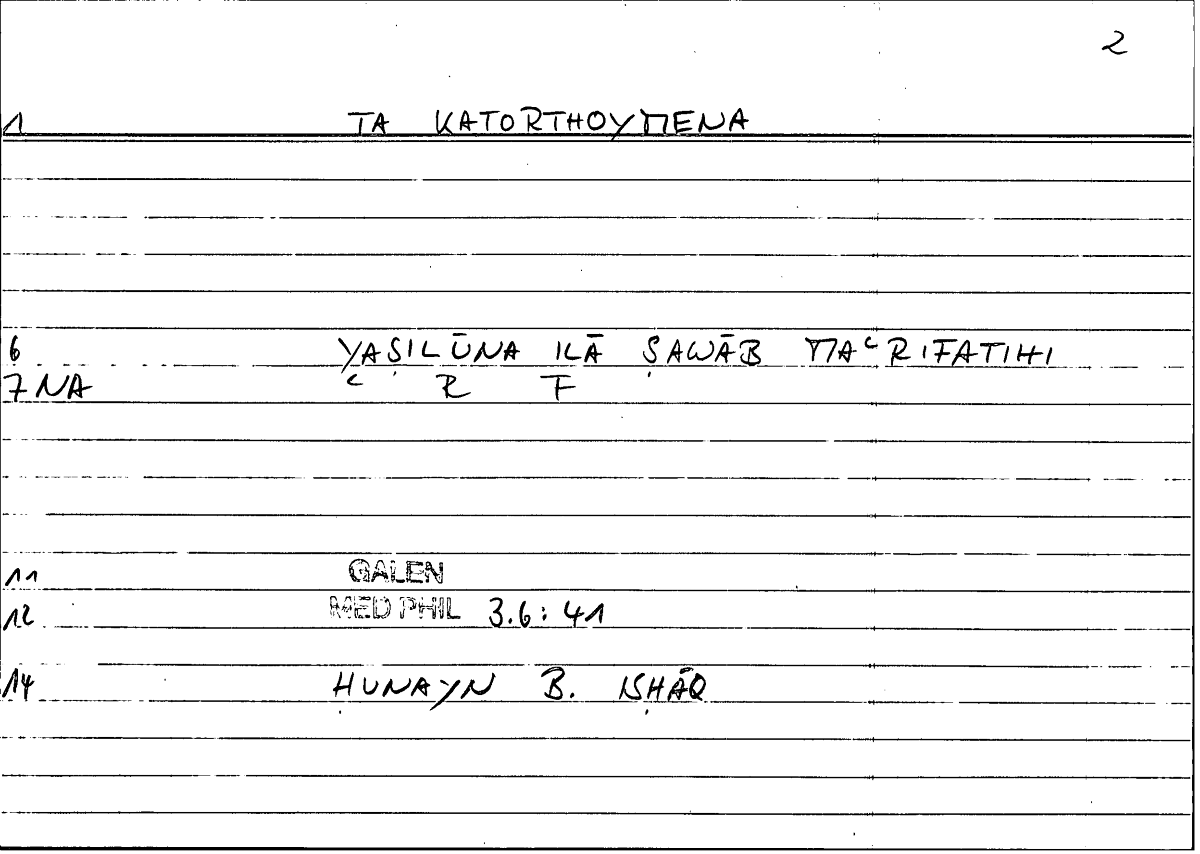 2
1 TA KATORTHOYMENA
6 YAṢILŪNA ILĀ ṢAWĀB MAʿRIFATIHI
7 NA ʿ R F
11 GALEN
12 MED PHIL 3.6: 41
14 ḤUNAYN B. ISḤĀQ